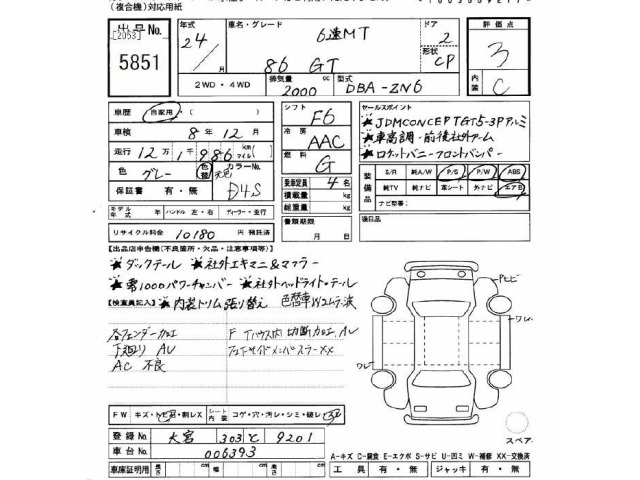 (複合機)対応用紙
出品No.
[2053]
5851
年式
24
月
車名・グレード
6速MT
86 GT
ドア
2
形状
CP
評価点
3
内装
C
2WD・4WD
排気量
2000
cc
型式
DBA-ZN6
車歴
自家用
車検
8年12月
走行
12万1千986
km
マイル
色
グレー
色替
元色
カラーNo.
D4S
保証書
有・無
シフト
F6
冷房
AAC
燃料
G
乗車定員
4名
積載量
kg
総重量
kg
書類期限
月 日
セールスポイント
★JDMCONCEPTGT5-3Pアルミ
★車高調・前後社外アーム
★ロケットバニーフロントバンパー
装備品
S/R 純A/W P/S P/W ABS
純TV 純ナビ 革シート 外ナビ エアB
ナビ型番:
後日品
モデル年式
年
ハンドル 左・右
ディーラー・並行
リサイクル料金
10180
円 預託済
【出品店申告欄(不良箇所・欠品・注意事項等)】
★ダックテール ★社外エキマニ&マフラー
★零1000パワーチャンバー ★社外ヘッドライト・テール
【検査員記入】
★内装トリム張り替え 色替車Wコムテ波
各フェンダー加工
下廻り AU
AC 不良
切断加工 AU
XX
Pエビ
ワレ
ワレ
FW キズ・トビ石・割レX
シート内装
コゲ・穴・汚レ・シミ・破レ
登録No.
大宮 303 と 9201
車台No.
006393
スペア
A-キズ C-腐食 E-エクボ S-サビ U-凹ミ W-補修 XX-交換済
車庫証明用
長さ
cm
幅
cm
高さ
cm
工具 有・無
ジャッキ 有・無